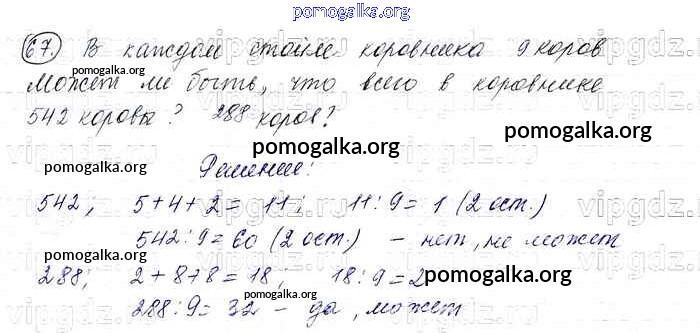 pomogalka.org
67. В каждом стойле коровника 9 коров
Может ли быть, что всего в коровнике
pomogalka.org
542 коровы? 288 коров?
pomogalka.org
pomogalka.org
Решение:
542; 5+4+2= 11; 11:9= 1 (2 ост.)
542:9= 60 (2 ост.) – нет, не может
288; 2+8+8= 18; 18:9= 2
pomogalka.org
288:9= 32 – да, может
pomogalka.org
vipgdz.ru